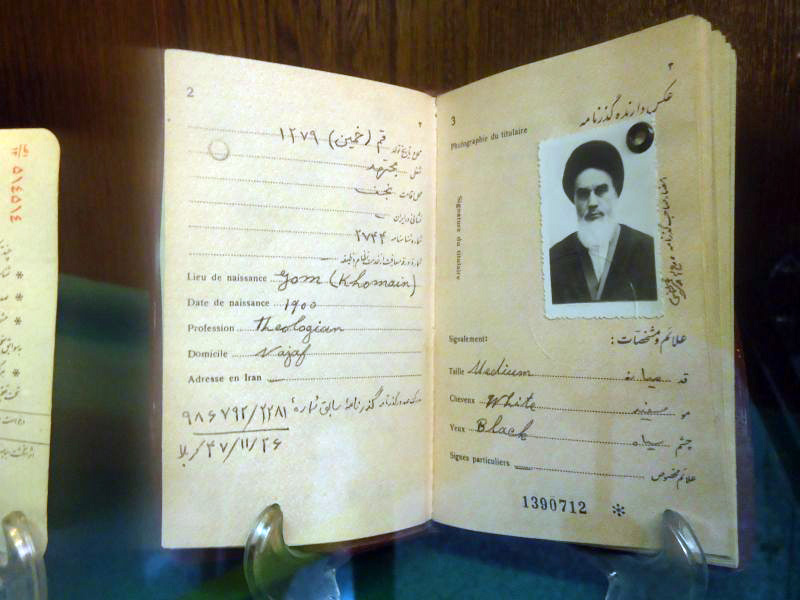 2
۲
محل و تاریخ تولد قم (خمین) ۱۲۷۹
شغل مجتهد
محل اقامت نجف
نشانی در ایران
شماره شناسنامه ۲۷۴۴
Lieu de naissance Gom (Khomain)
Date de naissance 1900
Profession Theologian
Domicile Najaf
Adresse en Iran
گذرنامه سابق شماره
۹۸۶۷۹۲/۲۲۸۱
۴۷/۱۱/۲۶
3
۳
عکس دارنده گذرنامه
Photographie du titulaire
Signature du titulaire
امضاء صاحب گذرنامه
علائم و مشخصات :
Signalement:
Taille Medium میانه قد
Cheveux White سفید مو
Yeux Black سیاه چشم
Signes particuliers علائم مخصوص
1390712 *